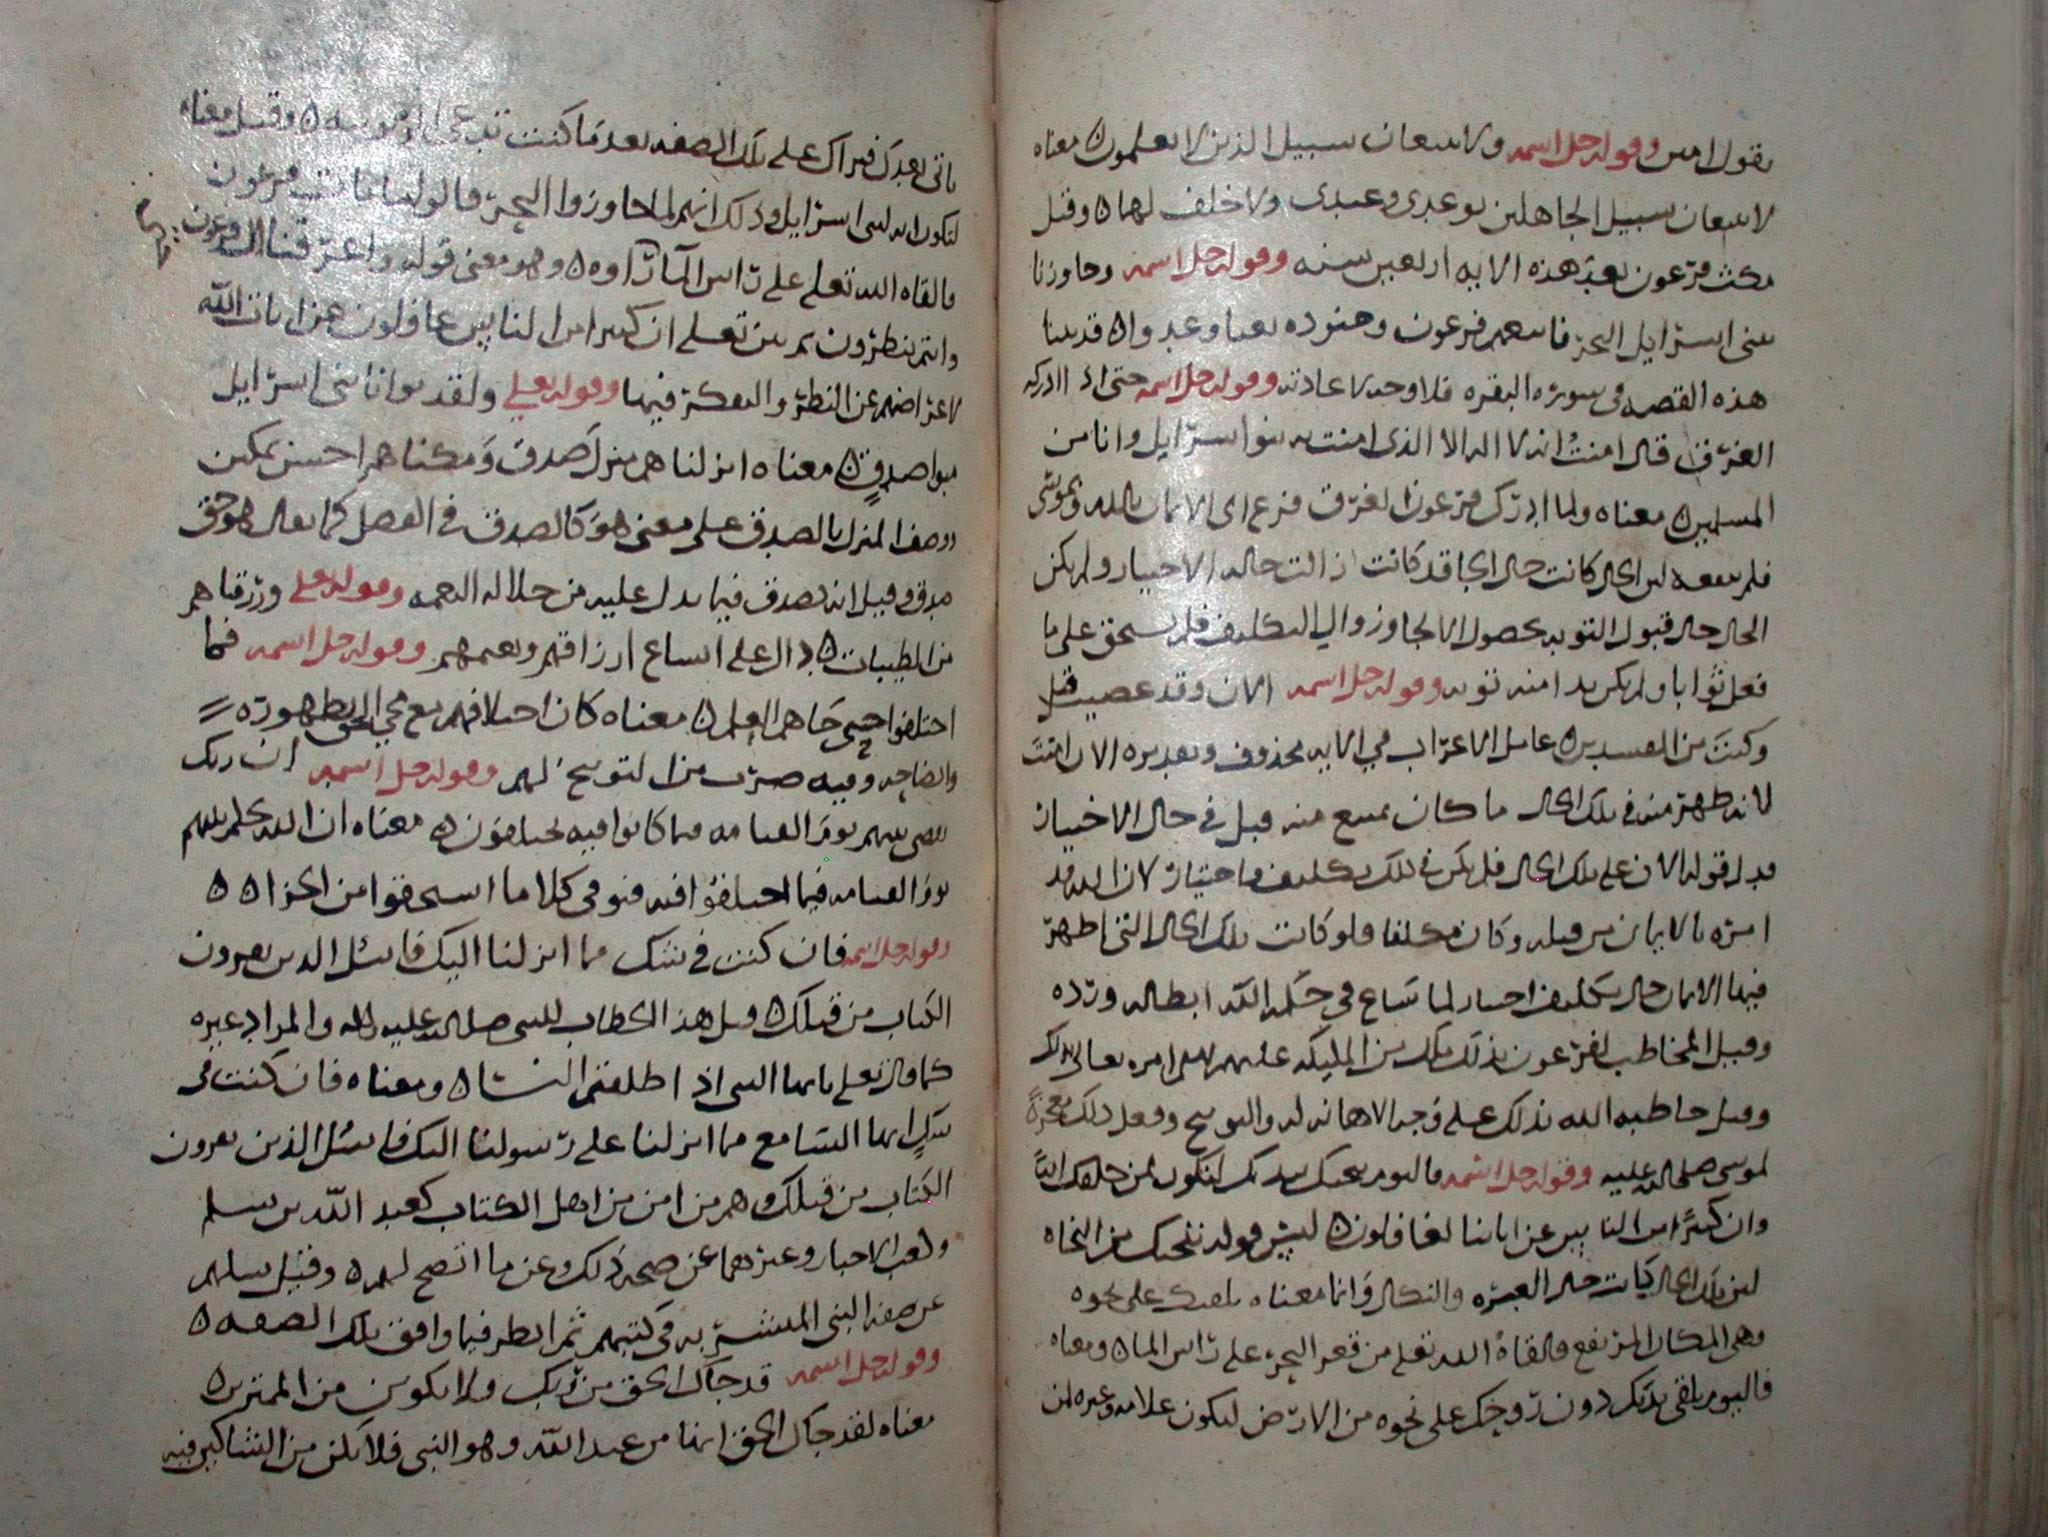 يقول امين وقوله جل اسمه ولا تتبعان سبيل الذين لا يعلمون ٥ معناه
لا تتبعان سبيل الجاهلين بوعدي وعيدي ولا خلف لهما ٥ وقيل
مكث فرعون بعد هذه الايه اربعين سنه وقوله جل اسمه وجاوزنا
ببني اسرايل البحر فاتبعهم فرعون وجنوده بغيا وعدوا ٥ قد بينا
هذه القصه في سوره البقره فلا وجه لاعادته وقوله جل اسمه حتى اذا ادركه
الغرق قال امنت انه لا اله الا الذي امنت به بنوا اسرايل وانا من
المسلمين ٥ معناه ولما ادرك فرعون الغرق فزع الى الايمان بالله وبموسى
فلم ينفعه لان الحال كانت حال الجا قد كانت زالت حاله الاختيار ولم يكن
الحال حال قبول التوبه لحصول الالجا وزوال التكليف فلم يستحق على ما
فعل ثوابا ولم يكن بدا منه توبه وقوله جل اسمه الان وقد عصيت قبل
وكنت من المفسدين ٥ عامل الاعراب في الايه محذوف وتقديره الان امنت
لانه ظهر منه في تلك الحال ما كان يمتنع منه قبل في حال الاختيار
فدل قوله الان على تلك الحال فلم يكن في ذلك تكليف واختيار لان الله قد
امره بالايمان من قبله وكان مكلفا فلو كانت تلك الحال التي اظهر
فيها الايمان حال تكليف اختيار لما ساغ في حكمه الله ابطاله ورده
وقيل المخاطب لفرعون بذلك ملك من المليكه عليهم السلم امره تعالى بذلك
وقيل خاطبه الله بذلك على وجه الاهانه له والتوبيخ وفعل ذلك معجزة
لموسى صلى الله عليه وقوله جل اسمه فاليوم ننجيك ببدنك لتكون لمن خلفك اية
وان كثيرا من الناس عن اياتنا لغافلون ٥ ليس قوله ننجيك من النجاه
لان تلك الحال كانت حال العبره والنكال وانما معناه نلقيك على نجوه
وهي المكان المرتفع فالقاه الله تعلى من قعر البحر على راس الما ٥ ومعناه
فاليوم نلقي بدنك دون روحك على نجوه من الارض لتكون علامه وعبره لمن
ياتي بعدك فيراك على تلك الصفه بعد ما كنت تدعي الربوبيه ٥ وقيل معناه
لتكون ايه لبني اسرايل وذلك انهم لما جاوزوا البحر قالو لنا ما مات فرعون
فالقاه الله تعلى على راس الما راوه ٥ وهو معنى قوله واغرقنا ال فرعون
وانتم تنظرون ثم بين تعلى ان كثيرا من الناس غافلون عن ايات الله
لاعراضهم عن النظر والتفكر فيها وقوله تعلى ولقد بوانا بني اسرايل
مبوا صدق ٥ معناه انزلناهم منزل صدق ومكناهم احسن تمكين
ووصف المنزل بالصدق على معنى هو كالصدق في الفضل كما يقال هو حق
صدق وقيل انه يصدق فيما يدل عليه من جلاله النعمه وقوله تعلى ورزقناهم
من الطيبات ٥ دال على اتساع ارزاقهم ونعمهم وقوله جل اسمه فما
اختلفوا حتى جاهم العلم ٥ معناه كان اختلافهم مع مجي الحق بظهوره
وايضاحه وفيه ضرب من التوبيخ لهم وقوله جل اسمه ان ربك
يقضي بينهم يوم القيامه فيما كانوا فيه يختلفون ٥ معناه ان الله يحكم بينهم
يوم القيامه فيما اختلفوا فيه فيوفي كلا ما استحقوا من الجزا ٥ ٥
وقوله جل اسمه فان كنت في شك مما انزلنا اليك فاسئل الذين يقرون
الكتاب من قبلك ٥ قيل هذا الخطاب للنبي صلى الله عليه واله والمراد غيره
كما قال تعلى يايها النبي اذا طلقتم النسا ٥ ومعناه فان كنت في
شك ايها السامع مما انزلنا على رسولنا اليك فاسئل الذين يقرون
الكتاب من قبلك وهم من امن من اهل الكتاب كعبد الله بن سلم
وكعب الاحبار وغيرهما عن صحه ذلك وعن ما اتضح لهم ٥ وقيل سلهم
عن صفه النبي المبشر به في كتبهم ثم انظر فيما وافق تلك الصفه ٥
وقوله جل اسمه قد جاك الحق من ربك فلا تكونن من الممترين ٥
معناه لقد جاك الحق ايها من عند الله وهو النبي فلا تكن من الشاكين فيه